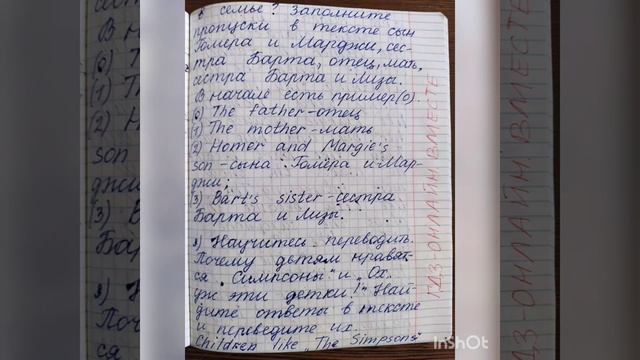 в семье? Заполните
пропуски в тексте сын
Гомера и Марджи, сес-
тра Барта, отец, мать,
сестра Барта и Лиза.
В начале есть пример(0).
(0) The father-отец
(1) The mother-мать
(2) Homer and Margie's
son-сына Гомера и Мар-
джи;
(3) Bart's sister-сестра
Барта и Лизы.
3) Научитесь переводить.
Почему детям нравят-
ся „Симпсоны" и „Ох.
уж эти детки!" Най-
дите ответы в тексте
и переведите их.
Children like „The Simpsons"
ГДЗ-ОНЛАЙН. ВМЕСТЕ
InShOt